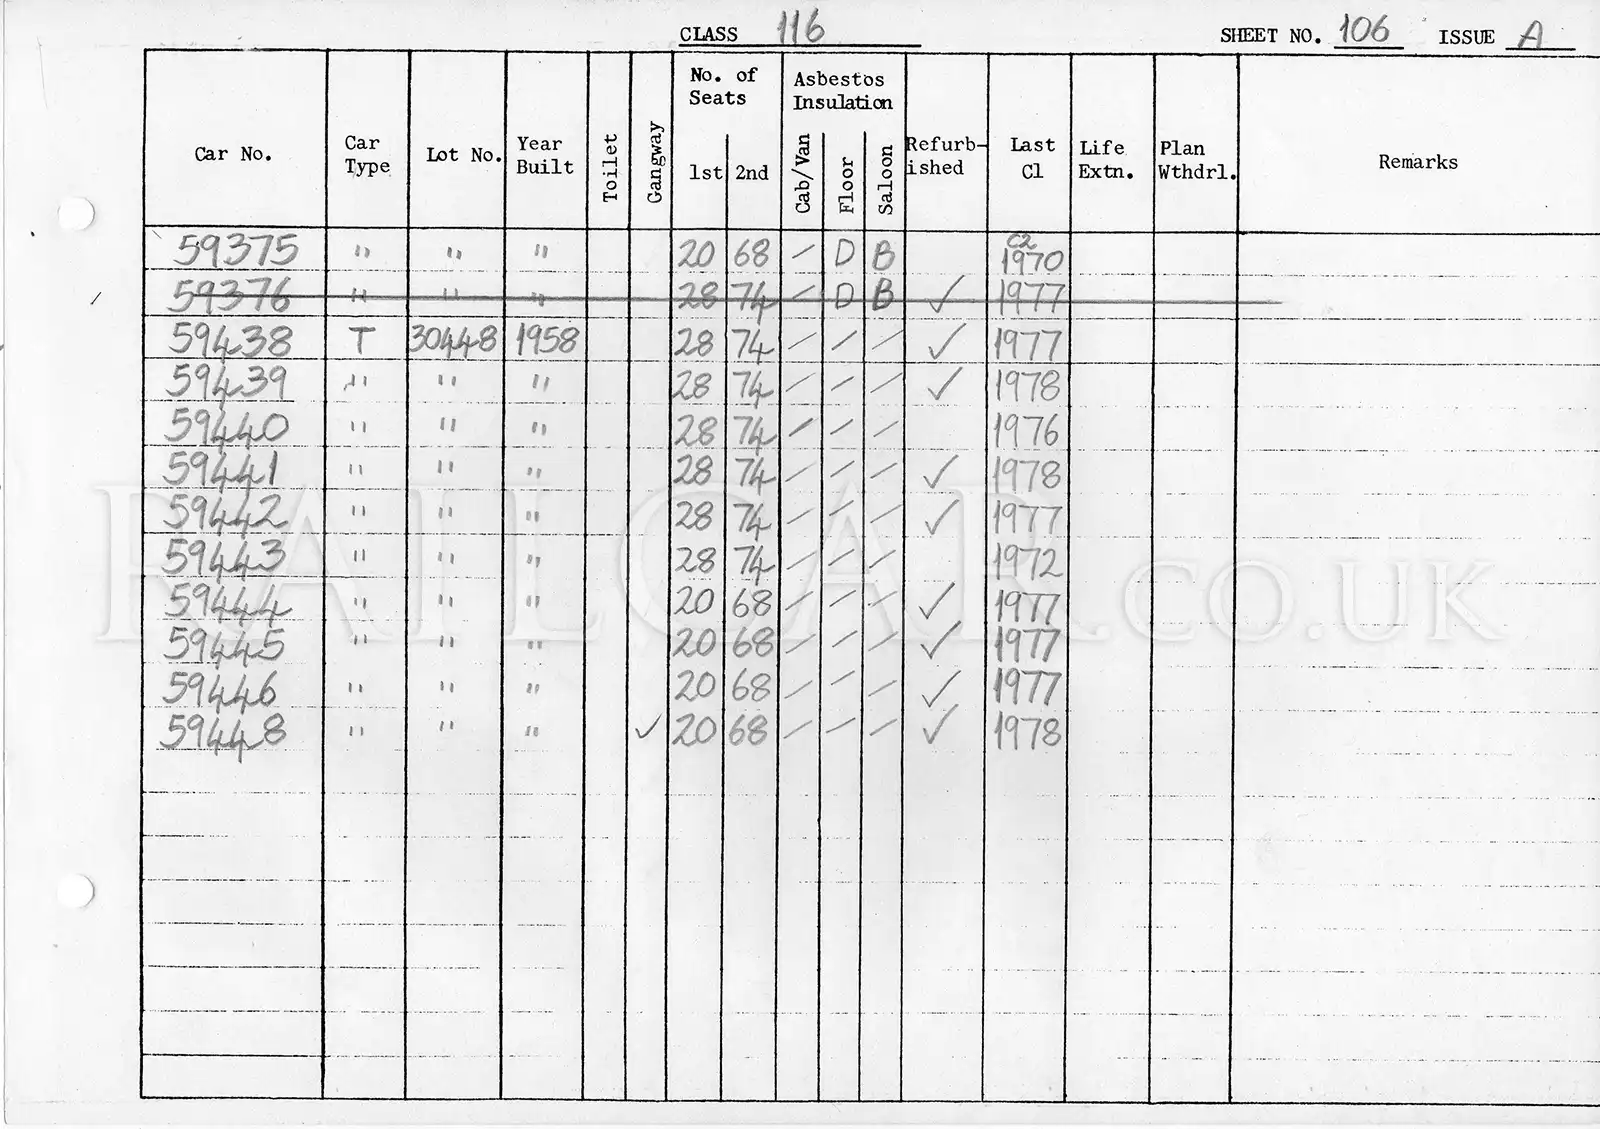 CLASS 116 SHEET NO. 106 ISSUE A
Car No. Car Type Lot No. Year Built Toilet Gangway No. of Seats 1st 2nd Asbestos Insulation Cab/Van Floor Saloon Refurb-ished Last Cl Life Extn. Plan Wthdrl. Remarks
59375 " " " 20 68 / D B C2 1970
59376 " " " 28 74 / D B ✓ 1977
59438 T 30448 1958 28 74 / / / ✓ 1977
59439 " " " 28 74 / / / ✓ 1978
59440 " " " 28 74 / / / 1976
59441 " " " 28 74 / / / ✓ 1978
59442 " " " 28 74 / / / ✓ 1977
59443 " " " 28 74 / / / 1972
59444 " " " 20 68 / / / ✓ 1977
59445 " " " 20 68 / / / ✓ 1977
59446 " " " 20 68 / / / ✓ 1977
59448 " " " ✓ 20 68 / / / ✓ 1978
RAILCAR.CO.UK